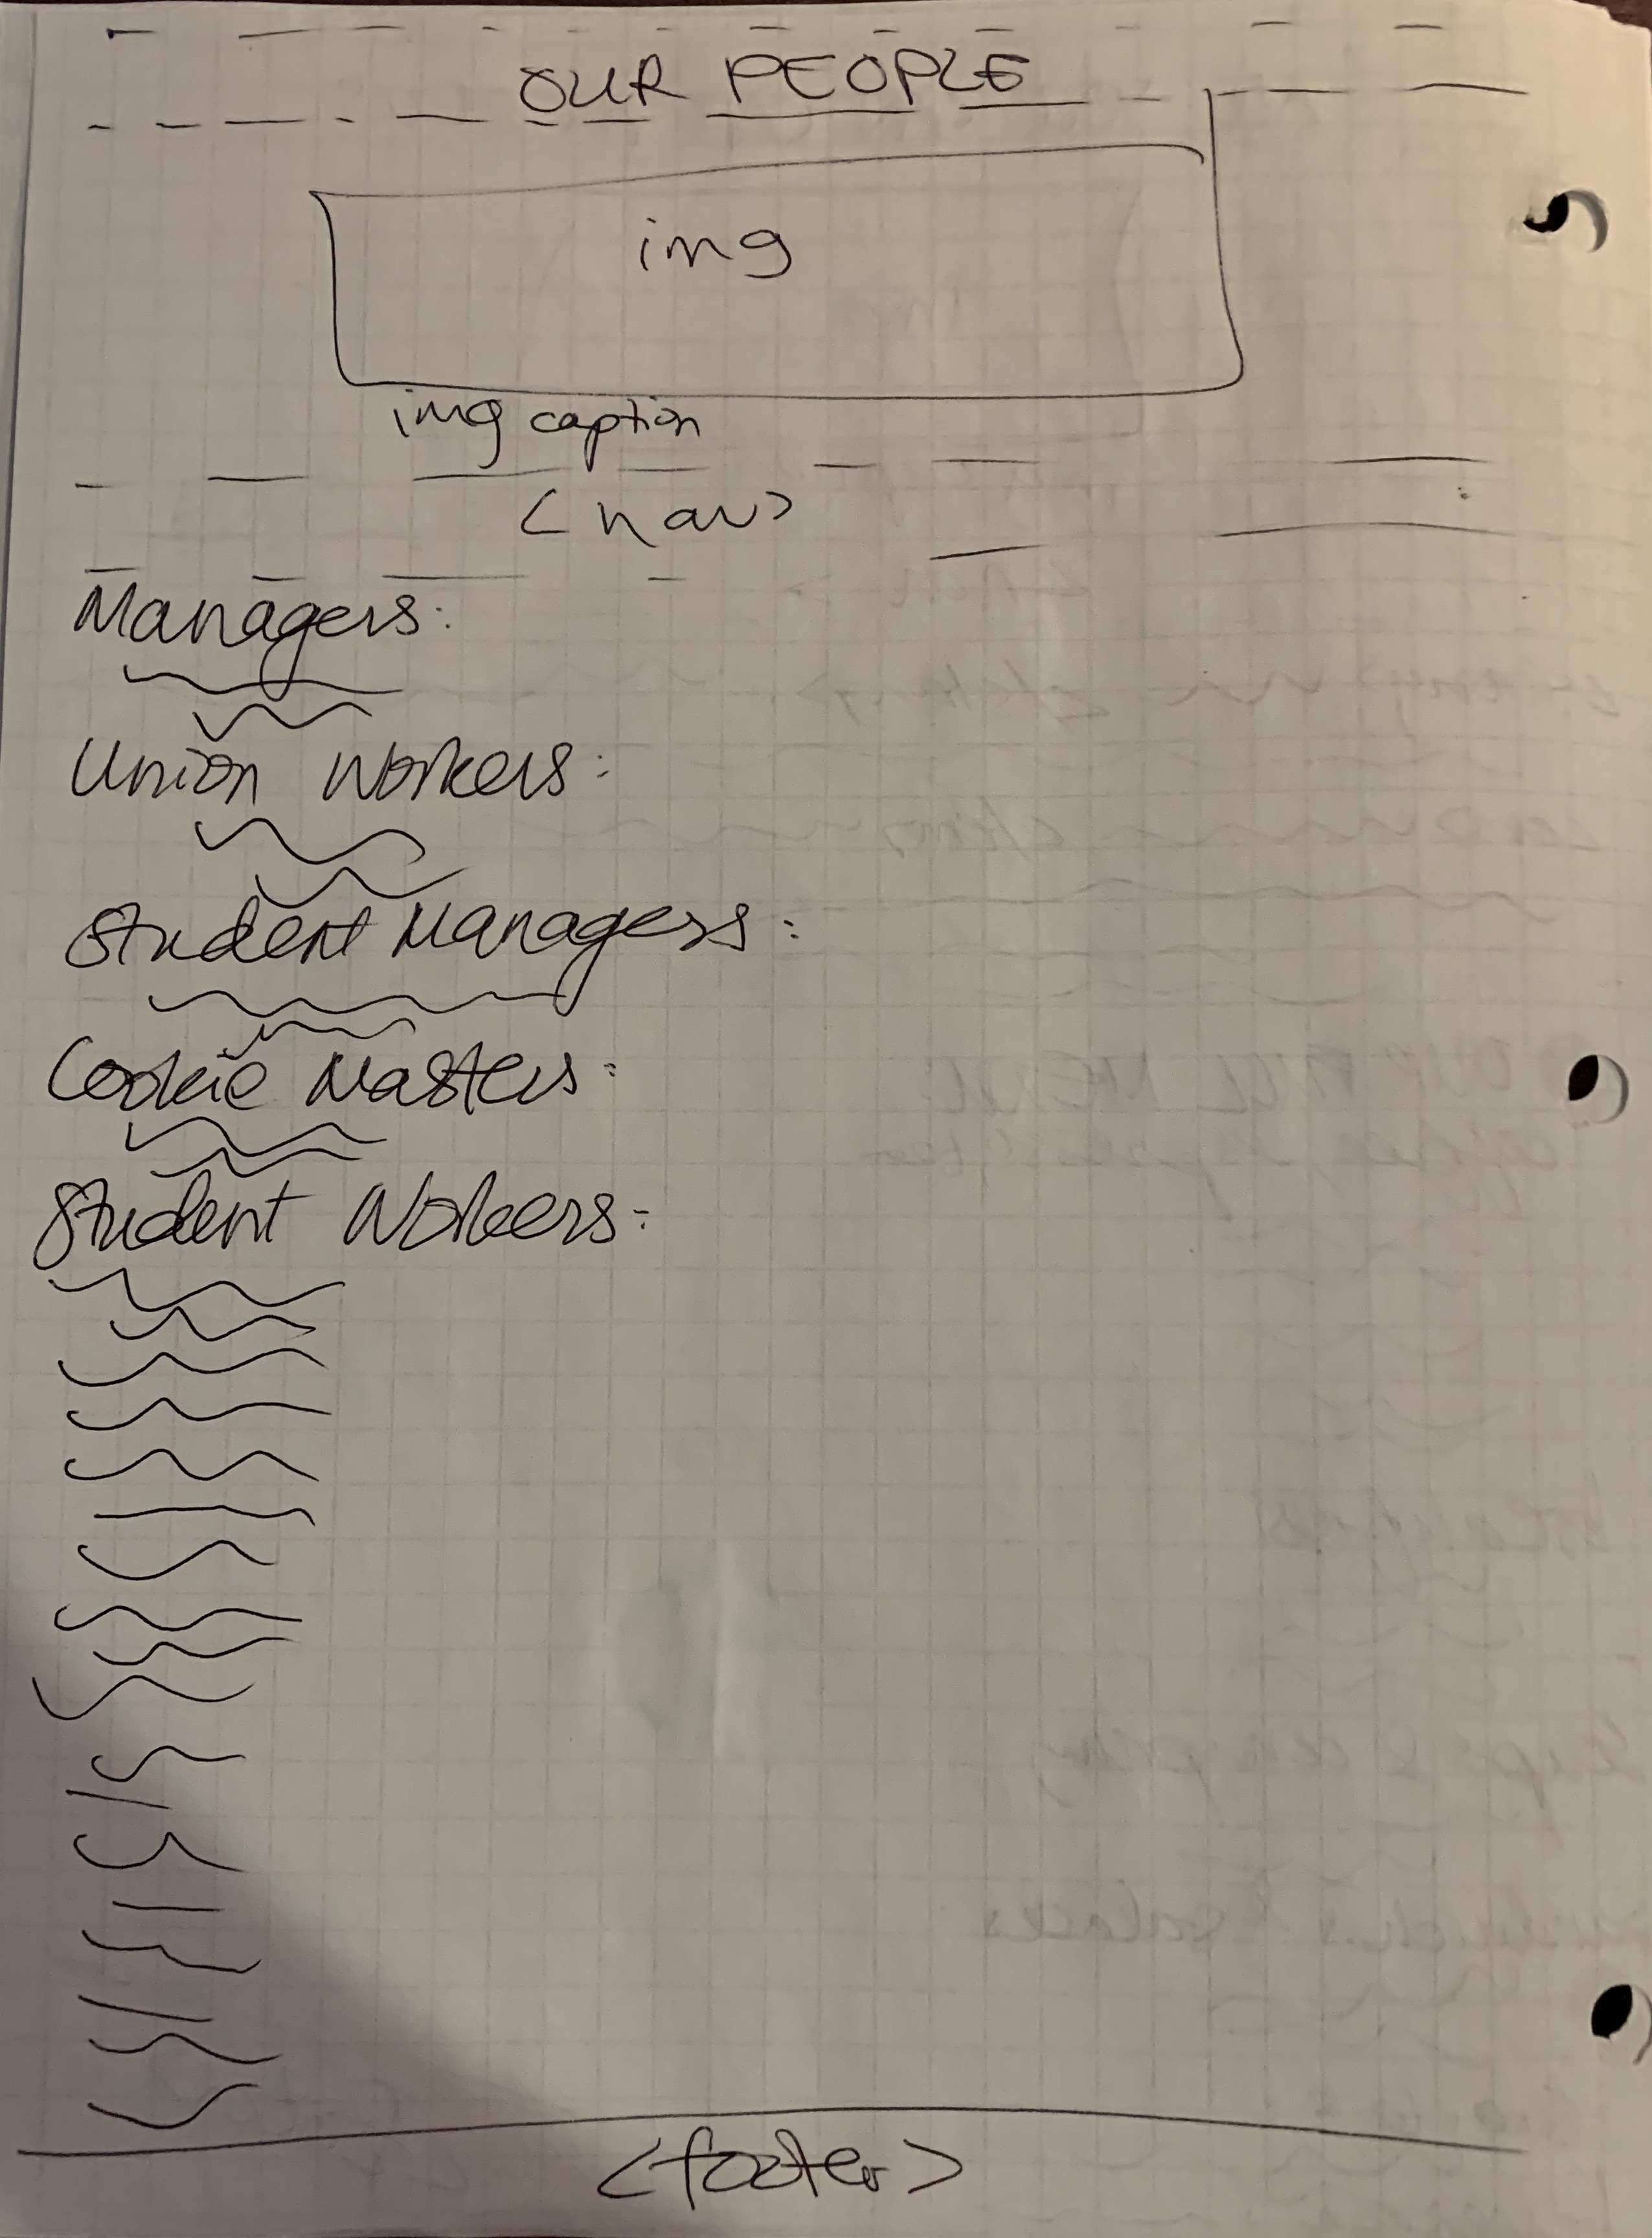 OUR PEOPLE
img
img caption
<nav>
Managers:
Union Workers:
Student Managers:
Cookie Masters:
Student Workers:
<footer>